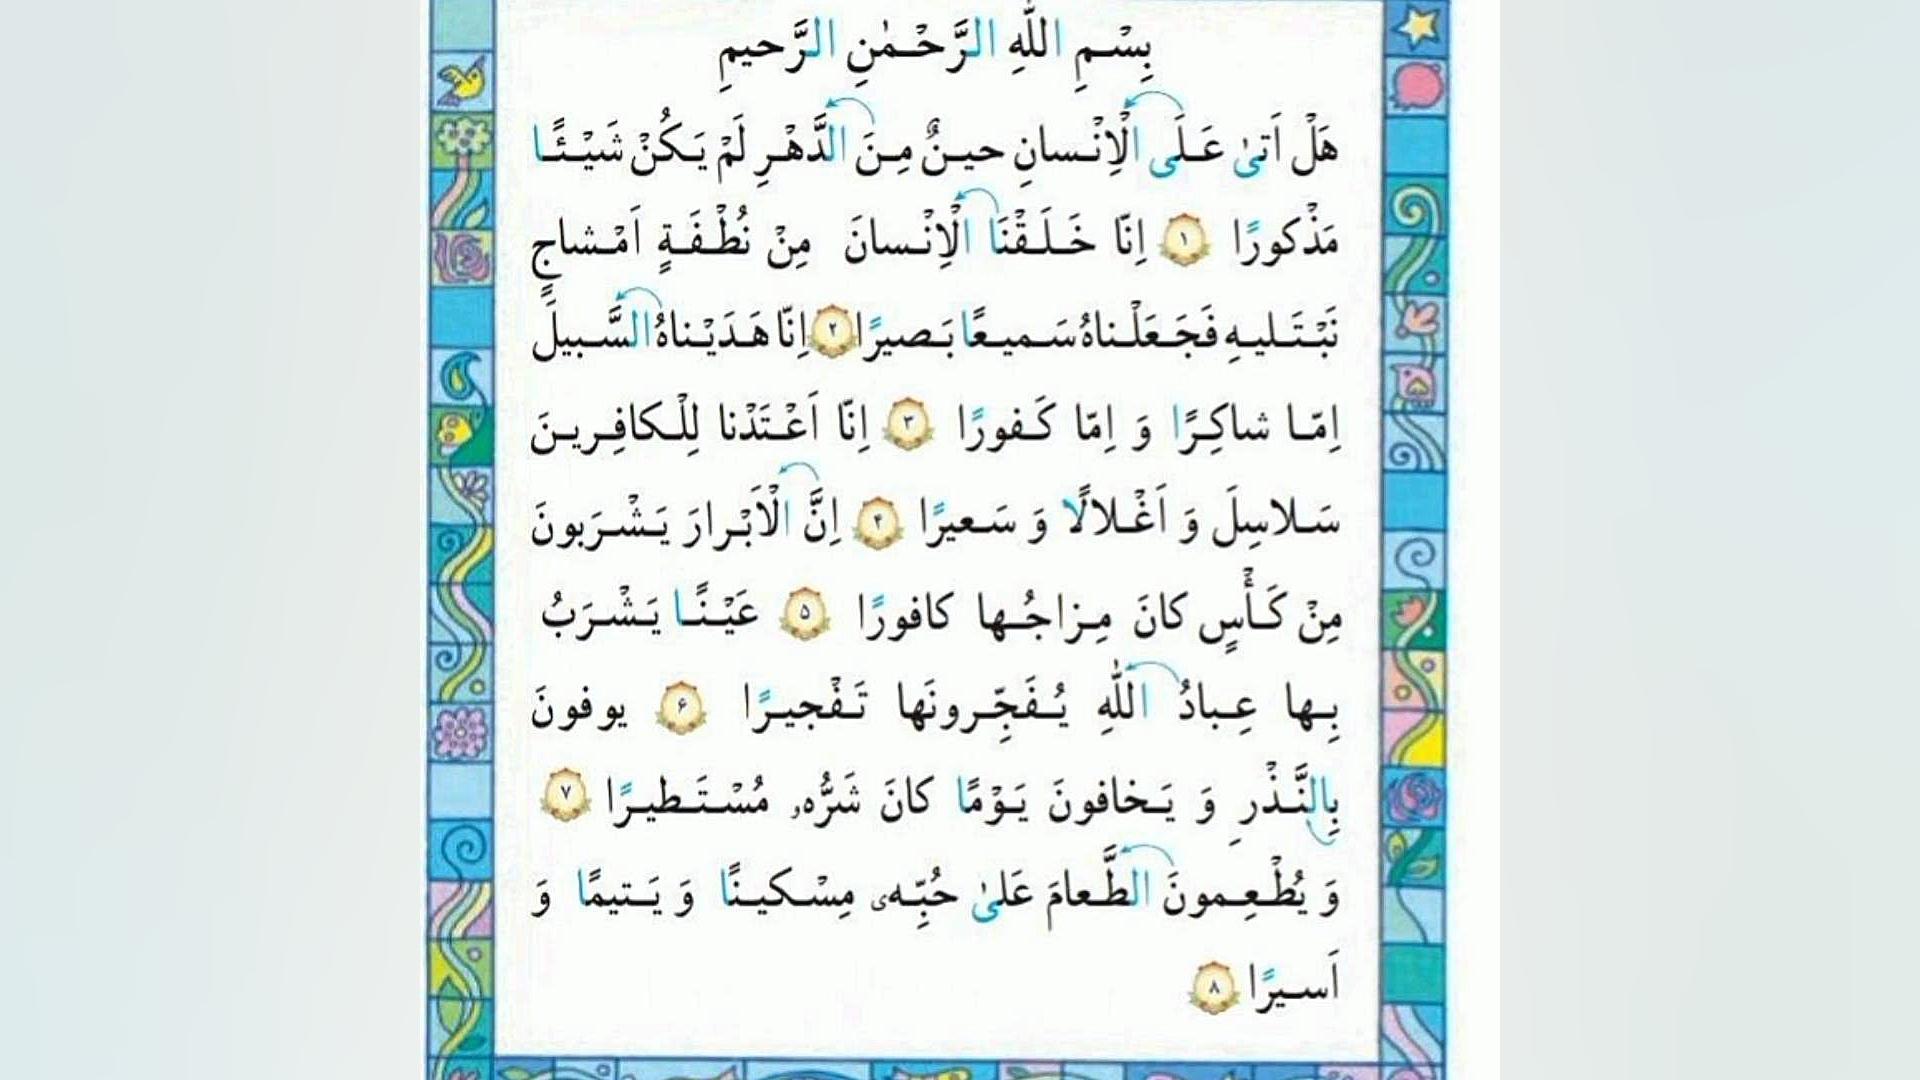 بِسْمِ اللّٰهِ الرَّحْمٰنِ الرَّحيمِ
هَلْ اَتىٰ عَلَى الْاِنْسانِ حينٌ مِنَ الدَّهْرِ لَمْ يَكُنْ شَيْئًا
مَذْكورًا ۱ اِنّا خَلَقْنَا الْاِنْسانَ مِنْ نُطْفَةٍ اَمْشاجٍ
نَبْتَليهِ فَجَعَلْناهُ سَميعًا بَصيرًا ۲ اِنّا هَدَيْناهُ السَّبيلَ
اِمّا شاكِرًا وَ اِمّا كَفورًا ۳ اِنّا اَعْتَدْنا لِلْكافِرينَ
سَلاسِلَ وَ اَغْلالًا وَ سَعيرًا ۴ اِنَّ الْاَبْرارَ يَشْرَبونَ
مِنْ كَأْسٍ كانَ مِزاجُها كافورًا ۵ عَيْنًا يَشْرَبُ
بِها عِبادُ اللّٰهِ يُفَجِّرونَها تَفْجيرًا ۶ يوفونَ
بِالنَّذْرِ وَ يَخافونَ يَوْمًا كانَ شَرُّهۥ مُسْتَطيرًا ۷
وَ يُطْعِمونَ الطَّعامَ عَلىٰ حُبِّهۦ مِسْكينًا وَ يَتيمًا وَ
اَسيرًا ۸